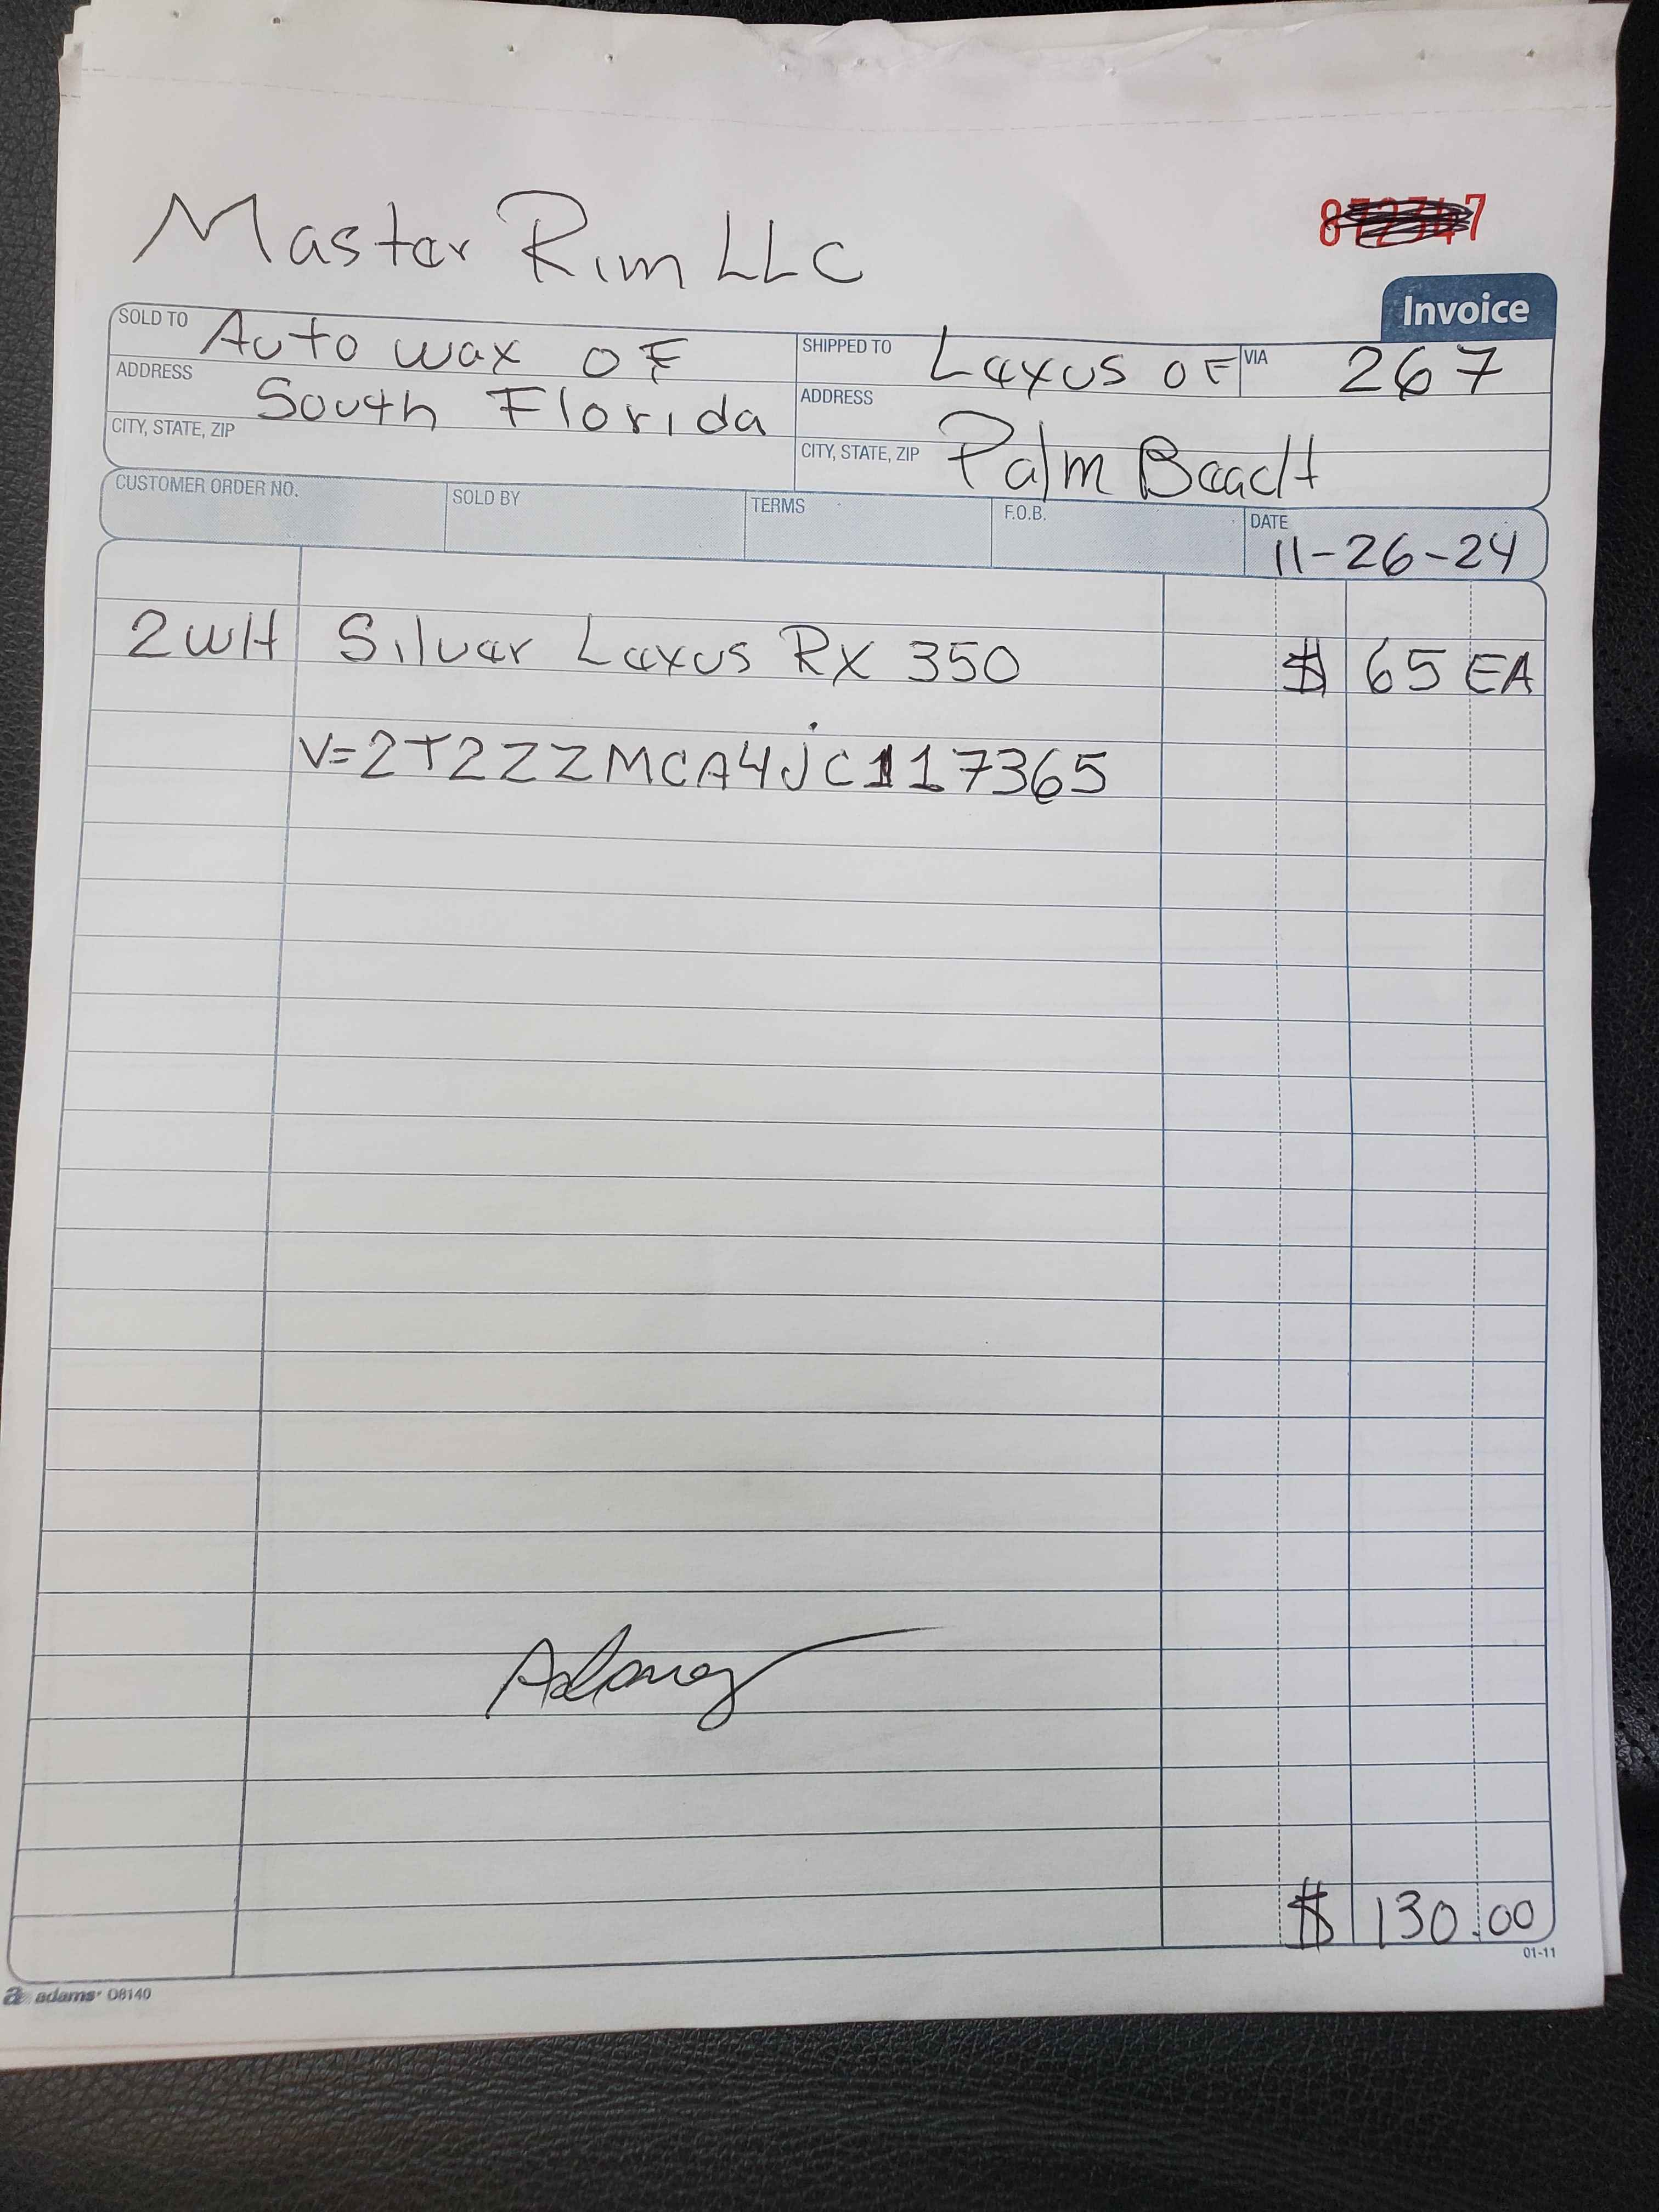 Master Rim LLC
Invoice
SOLD TO Auto wax OF
ADDRESS South Florida
CITY, STATE, ZIP
SHIPPED TO Lexus OF
VIA 267
ADDRESS
CITY, STATE, ZIP Palm Beach
CUSTOMER ORDER NO. SOLD BY TERMS F.O.B. DATE 11-26-24
2WH Silver Lexus RX 350 $ 65 EA
V=2T2ZZMCA4JC117365
$ 130.00
01-11
adams D8140